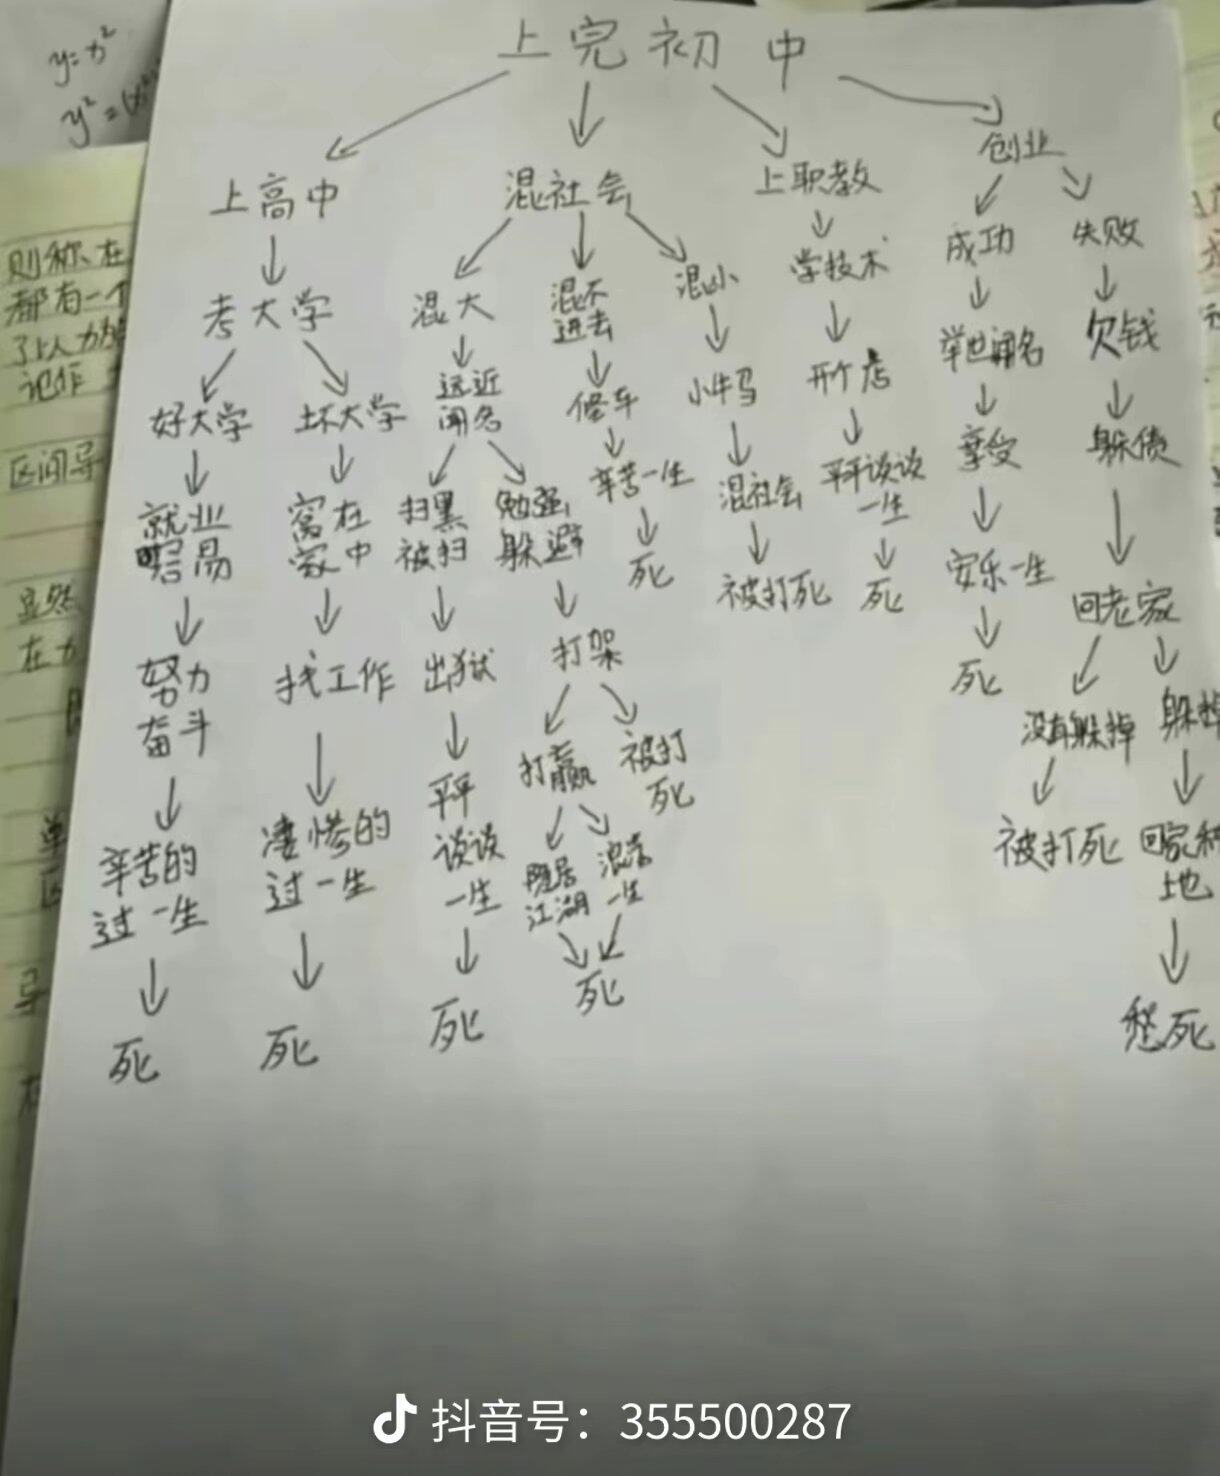 y=x²
y²=
上完初中
上高中
混社会
上职教
创业
考大学
混大
混不
进去
混小
学技术
成功
失败
好大学
坏大学
远近
闻名
修车
小牛马
开个店
举世闻名
欠钱
就业
容易
窝在
家中
扫黑
被扫
勉强
躲避
辛苦一生
混社会
平平谈谈
一生
享受
躲债
努力
奋斗
找工作
出狱
打架
死
被打死
死
安乐一生
回老家
辛苦的
过一生
凄惨的
过一生
平平
谈谈
一生
打赢
被打
死
死
没有躲掉
躲掉
隐居
江湖
流落
一生
被打死
回家种
地
死
死
死
死
愁死
则称在
都有一个
记作
区间导
显然
在
抖音号：355500287